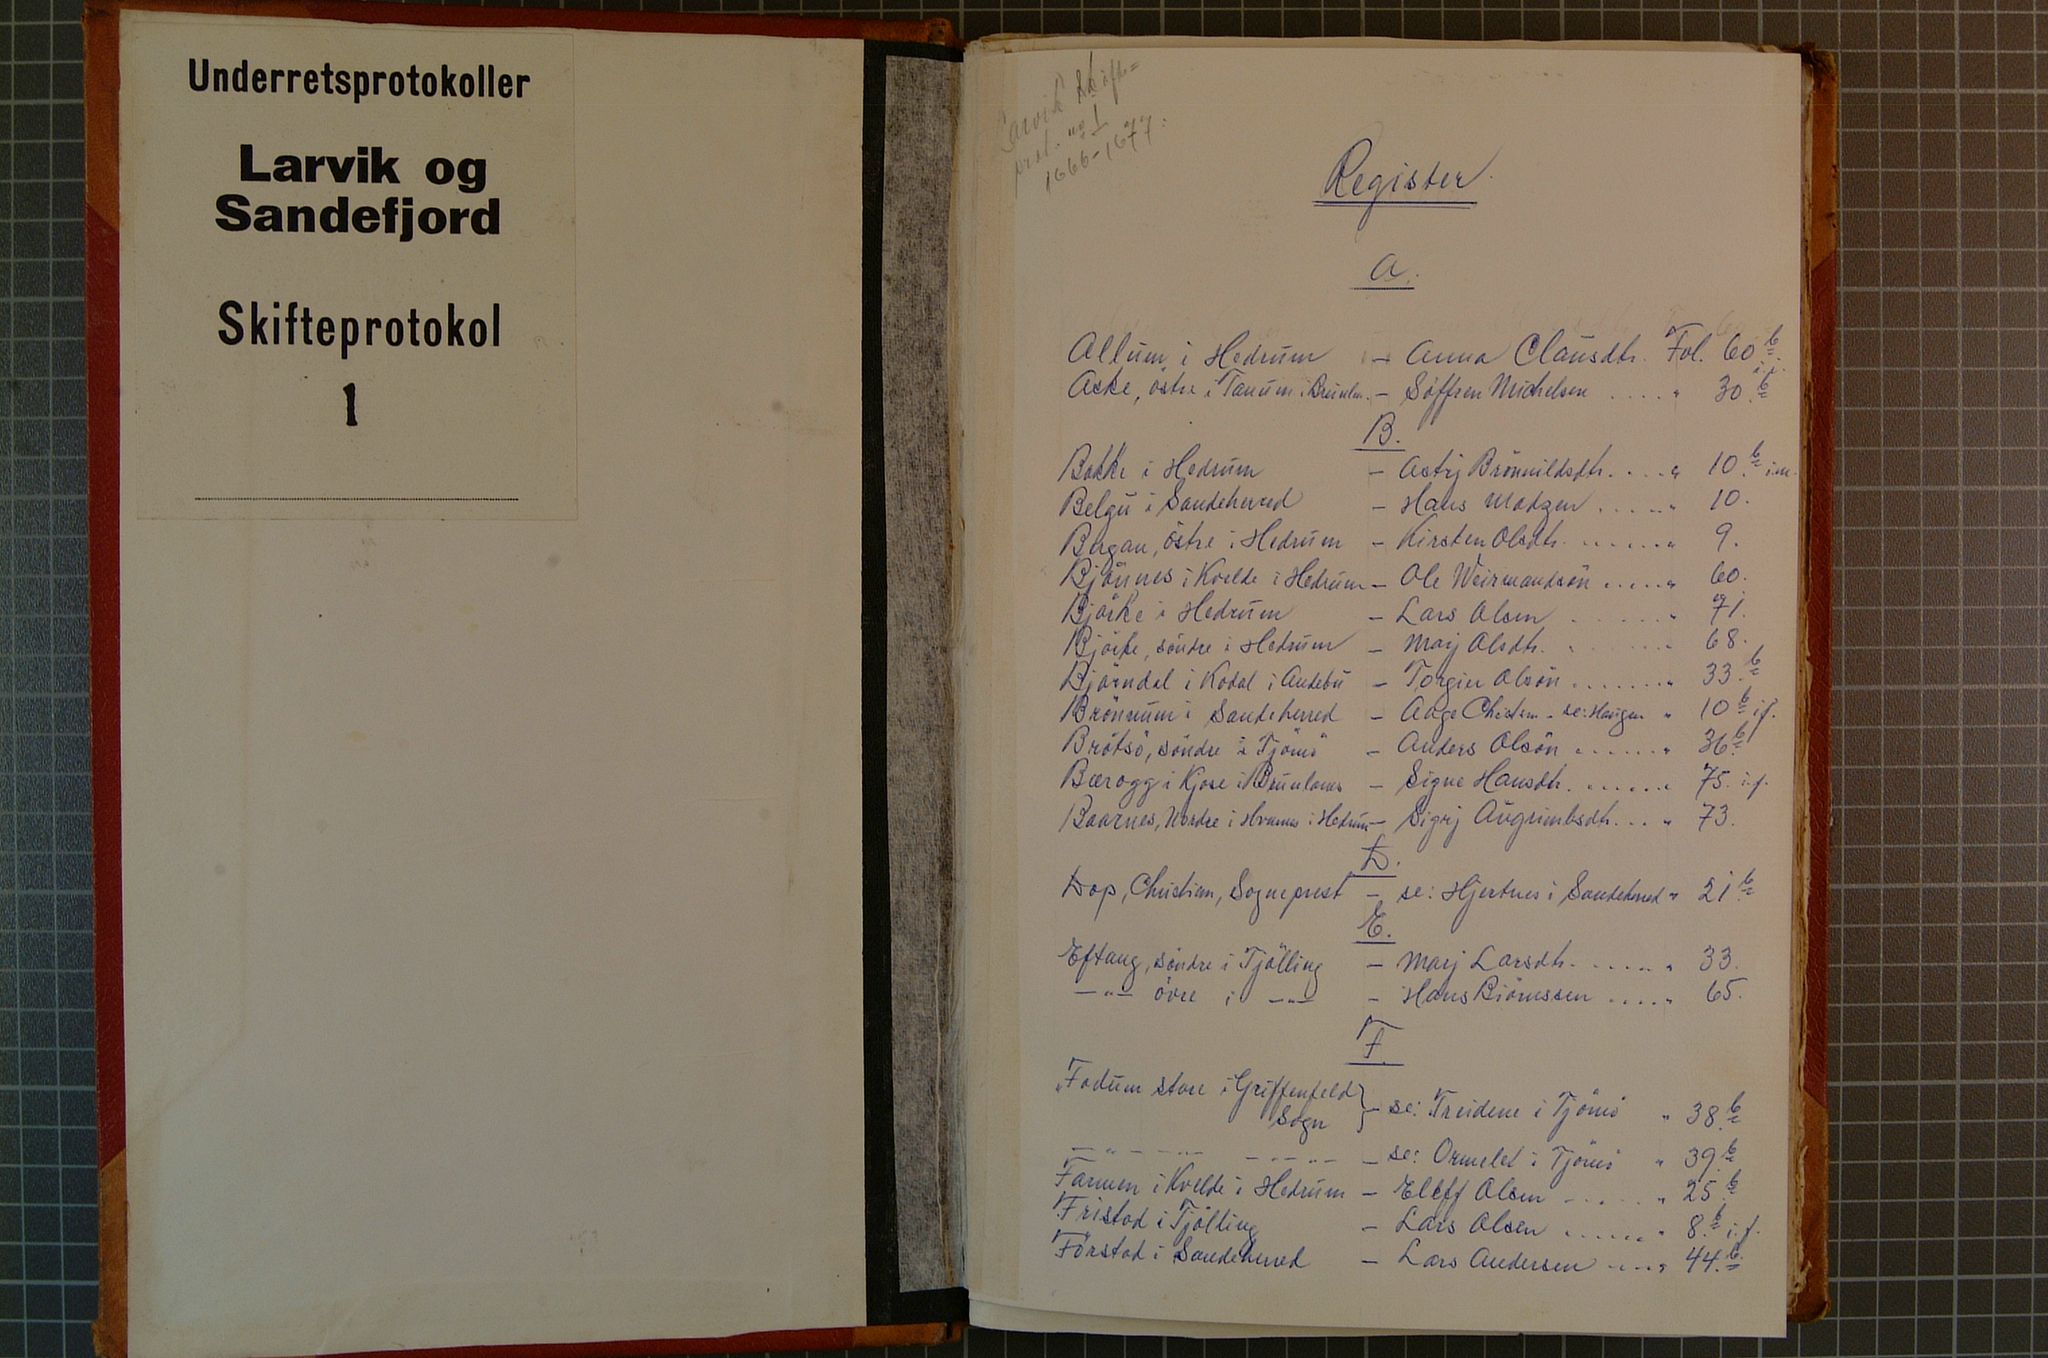 Underretsprotokoller
Larvik og
Sandefjord
Skifteprotokol
1
Larvik Skifte=
prot. no 1
1666-1677.
Register.
A.
Allum i Hedrum - Anna Clausdtr. Fol. 60 b i.f.
Aske, östre i Tanum i Brunlan. - Söffren Michelsen .... " 30. b
B.
Bakke i Hedrum - Astrj Brönnildsdtr. .... " 10. b i.m.
Belgu i Sandeherred - Hans Madzen ..... " 10.
Bergan, östre i Hedrum - Kirsten Olsdtr. ...... " 9.
Bjönnes i Kvelde i Hedrum - Ole Weirmandsön ..... " 60.
Björke i Hedrum - Lars Olsen ...... " 71.
Björke, söndre i Hedrum - Marj Olsdtr. ...... " 68.
Björndal i Kodal i Andebu - Torgier Olsön ....... " 33. b
Brönnum i Sandeherred - Aage Christen. - se: Haugen " 10 b i.f.
Brötsö, söndre i Tjömö - Anders Olsön ...... " 36. b
Bærogg i Kjose i Brunlanes - Signe Hansdtr. ...... " 75. i.f.
Baarnes, Nordre i Hvarnes i Hedrum - Sigrj Augrimbsdtr. ... " 73.
D.
Dop, Christian, Sogneprest - se: Hjertnes i Sandeherred " 21. b
E.
Eftang, söndre i Tjölling - Marj Larsdtr. ...... " 33.
- " - övre i - " - - Hans Biönnssen .... " 65.
F.
"Fodum store i Griffenfeld
Sogn } - se: Treidene i Tjömö " 38. b
- " - - " - - " - - " - - se: Ormelet i Tjömö " 39. b
Farmen i Kvelde i Hedrum - Eleff Olsen ...... " 25. b
Fristad i Tjölling - Lars Olsen ...... " 8. b i.f.
Förstad i Sandeherred - Lars Andersen .... " 44. b